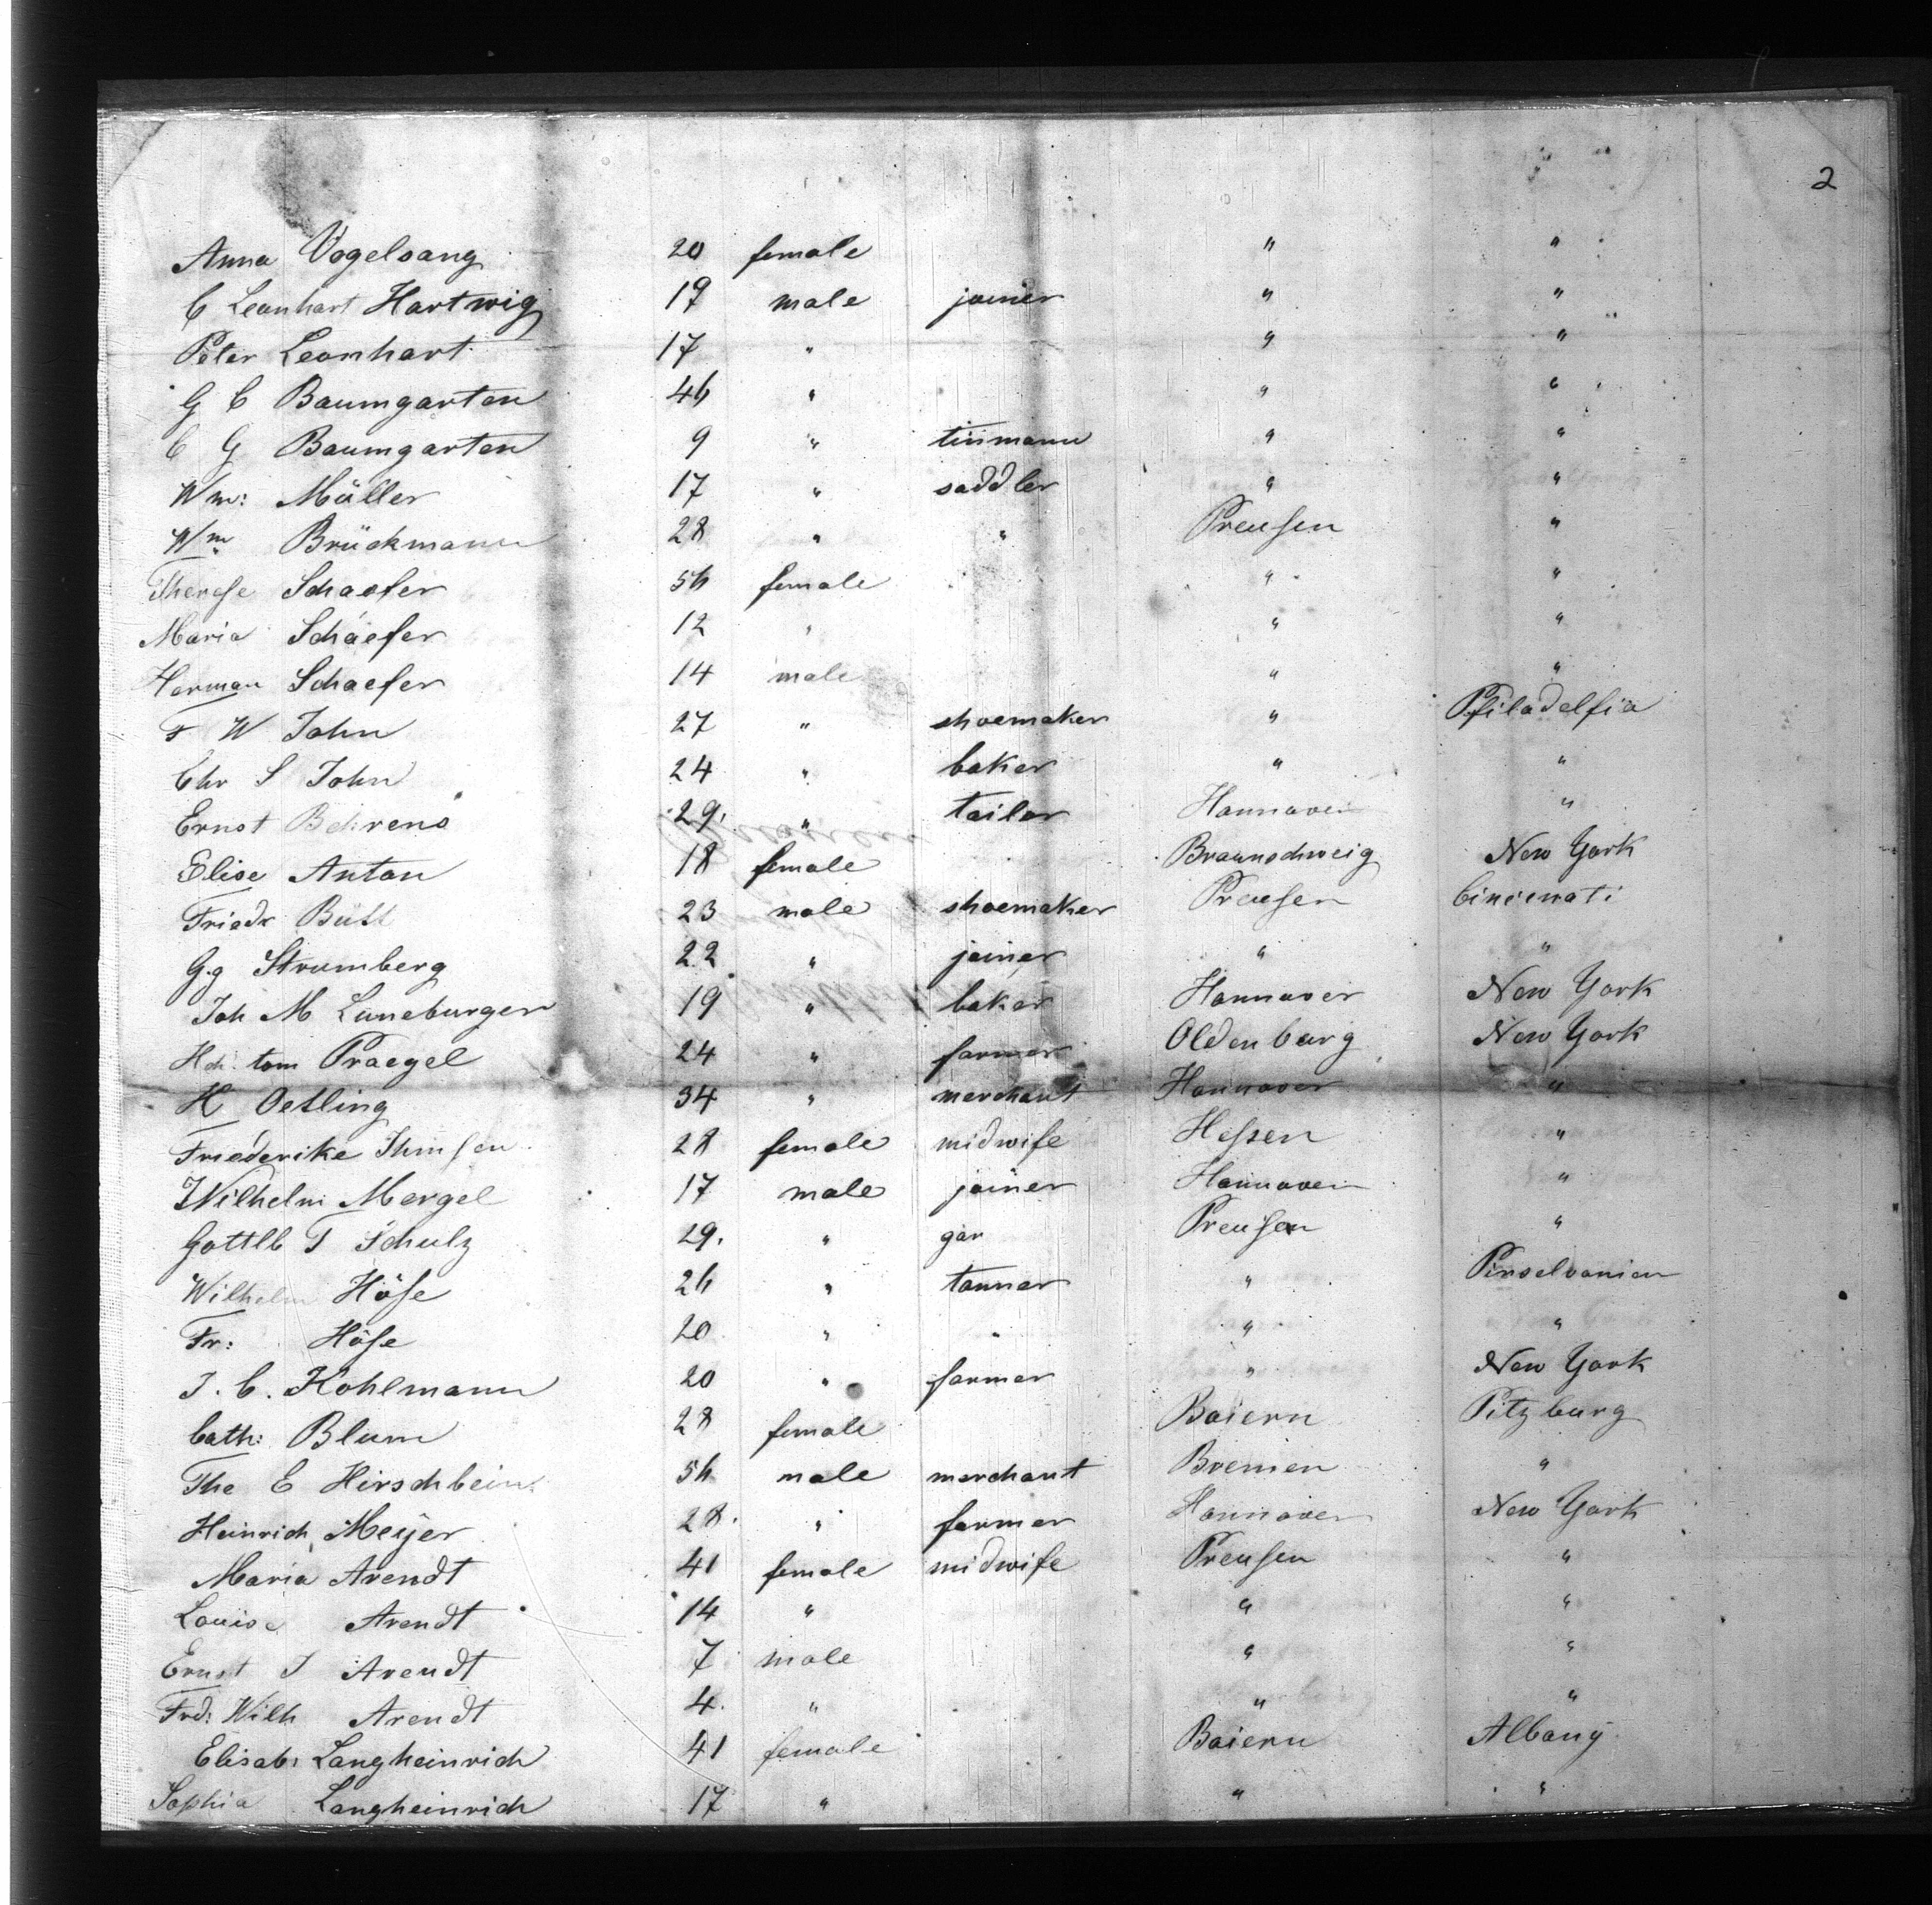 2
Anna Vogelsang 20 female " "
C Leonhart Hartwig 19 male joiner " "
Peter Leonhart 17 " " "
G C Baumgarten 46 " " "
C G Baumgarten 9 " tinmann " "
Wm: Müller 17 " saddler " "
Wm Brückmann 28 " " Preusen "
Therese Schaefer 56 female " "
Maria Schaefer 12 " " "
Herman Schaefer 14 male " "
F W John 27 " shoemaker " Pfiladelfia
Chr S John 24 " baker " "
Ernst Behrens 29. " tailor Hannover "
Elise Anton 18 female Braunschweig New York
Friedr 23 male shoemaker Preusen Cincinati
G.g Strumberg 22 " joiner " "
Joh M Luneburger 19 " baker Hannover New York
Hch: tom Praegel 24 " farmer Oldenburg New York
H Oetling 34 " merchant Hannover "
Friederike 28 female midwife Hessen "
Wilhelm Mergel 17 male joiner Hannover "
Gottlb T Schulz 29. " gar Preusen "
Wilhelm Höse 26 " tanner " Pinselvanien
Fr: Höse 20 " " " "
J. C. Kohlmann 20 " farmer " New York
Cath: Blum 28 female Baiern Pitzburg
The E Hirschbein 56 male merchant Bremen "
Heinrich Meyer 28. " farmer Hannover New York
Maria Arendt 41 female midwife Preusen "
Louise Arendt 14 " " "
Ernst J Arendt 7 male " "
Frd: Wilh Arendt 4. " " "
Elisab: Langheinrich 41 female Baiern Albany
Sophia Langheinrich 17 " " "